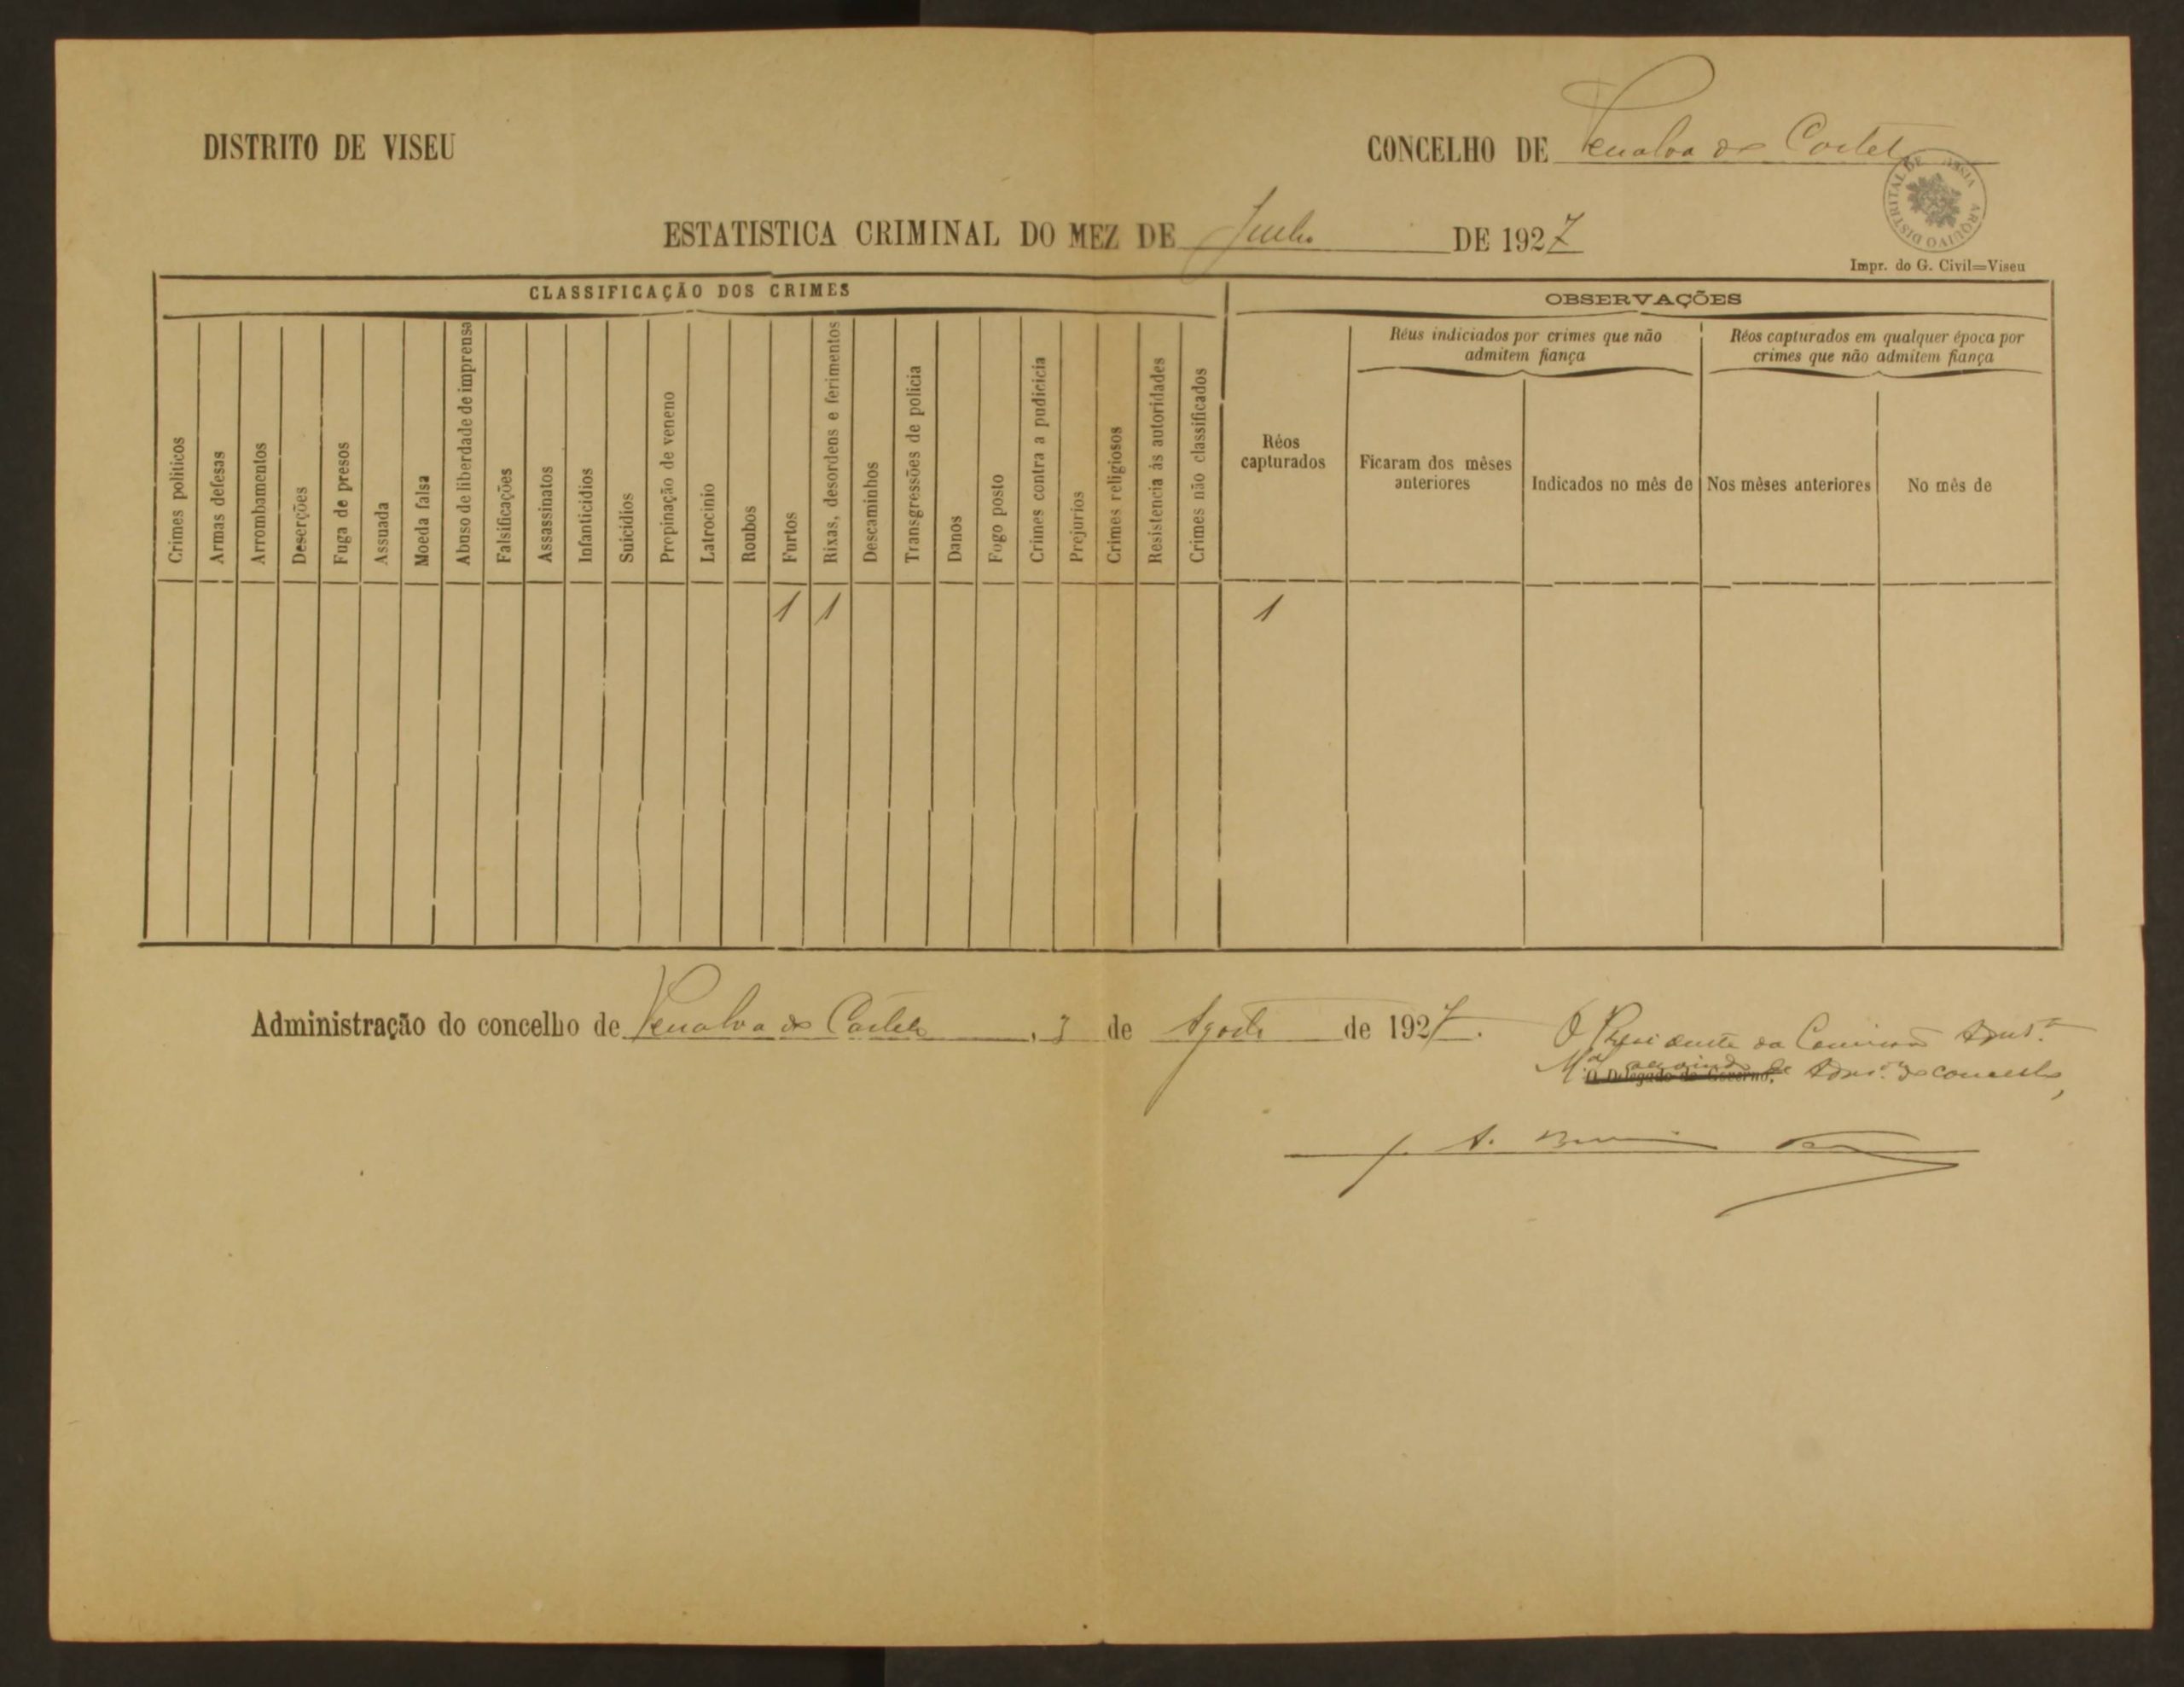 DISTRITO DE VISEU
CONCELHO DE Penalva do Castelo
ESTATISTICA CRIMINAL DO MEZ DE Julho DE 1927
ARQUIVO DISTRITAL DE
Impr. do G. Civil=Viseu
CLASSIFICAÇÃO DOS CRIMES
OBSERVAÇÕES
Réus indiciados por crimes que não
admitem fiança
Réos capturados em qualquer época por
crimes que não admitem fiança
Crimes politicos
Armas defesas
Arrombamentos
Deserções
Fuga de presos
Assuada
Moeda falsa
Abuso de liberdade de imprensa
Falsificações
Assassinatos
Infanticidios
Suicidios
Propinação de veneno
Latrocinio
Roubos
Furtos
Rixas, desordens e ferimentos
Descaminhos
Transgressões de policia
Danos
Fogo posto
Crimes contra a pudicicia
Prejurios
Crimes religiosos
Resistencia ás autoridades
Crimes não classificados
Réos
capturados
Ficaram dos mêses
anteriores
Indicados no mês de
Nos mêses anteriores
No mês de
1 1 1
Administração do concelho de Penalva do Castelo, 3 de Agosto de 1927.
O Presidente da Comissão Admª
O Delegado do Governo,
do concelho,
J. A.